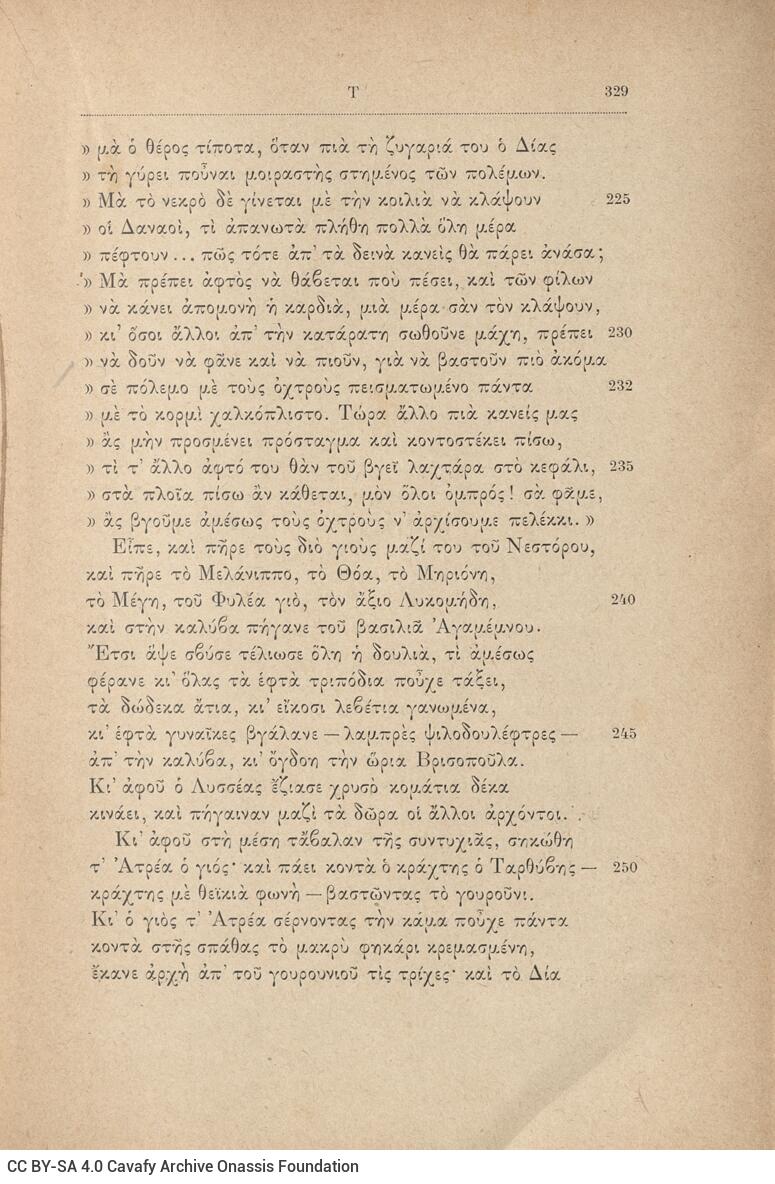 Τ 329
» μὰ ὁ θέρος τίποτα, ὅταν πιὰ τὴ ζυγαριά του ὁ Δίας
» τὴ γύρει ποὖναι μοιραστὴς στημένος τῶν πολέμων.
» Μὰ τὸ νεκρὸ δὲ γίνεται μὲ τὴν κοιλιὰ νὰ κλάψουν 225
» οἱ Δαναοί, τὶ ἀπανωτὰ πλήθη πολλὰ ὅλη μέρα
» πέφτουν... πῶς τότε ἀπ' τὰ δεινὰ κανεὶς θὰ πάρει ἀνάσα;
» Μὰ πρέπει ἀφτὸς νὰ θάβεται ποὺ πέσει, καὶ τῶν φίλων
» νὰ κάνει ἀπομονὴ ἡ καρδιά, μιὰ μέρα σὰν τὸν κλάψουν,
» κι' ὅσοι ἄλλοι ἀπ' τὴν κατάρατη σωθοῦνε μάχη, πρέπει 230
» νὰ δοῦν νὰ φᾶνε καὶ νὰ πιοῦν, γιὰ νὰ βαστοῦν πιὸ ἀκόμα
» σὲ πόλεμο μὲ τοὺς ὀχτροὺς πεισματωμένο πάντα 232
» μὲ τὸ κορμὶ χαλκόπλιστο. Τώρα ἄλλο πιὰ κανείς μας
» ἂς μὴν προσμένει πρόσταγμα καὶ κοντοστέκει πίσω,
» τὶ τ' ἄλλο ἀφτό του θὰν τοῦ βγεῖ λαχτάρα στὸ κεφάλι, 235
» στὰ πλοῖα πίσω ἂν κάθεται, μὸν ὅλοι ὀμπρός! σὰ φᾶμε,
» ἂς βγοῦμε ἀμέσως τοὺς ὀχτροὺς ν' ἀρχίσουμε πελέκκι. »
Εἶπε, καὶ πῆρε τοὺς διὸ γιοὺς μαζί του τοῦ Νεστόρου,
καὶ πῆρε τὸ Μελάνιππο, τὸ Θόα, τὸ Μηριόνη,
τὸ Μέγη, τοῦ Φυλέα γιό, τὸν ἄξιο Λυκομήδη, 240
καὶ στὴν καλύβα πήγανε τοῦ βασιλιᾶ Ἀγαμέμνου.
Ἔτσι ἅψε σβύσε τέλιωσε ὅλη ἡ δουλιά, τὶ ἀμέσως
φέρανε κι' ὅλας τὰ ἑφτὰ τριπόδια ποὖχε τάξει,
τὰ δώδεκα ἄτια, κι' εἴκοσι λεβέτια γανωμένα,
κι' ἑφτὰ γυναῖκες βγάλανε — λαμπρὲς ψιλοδουλέφτρες — 245
ἀπ' τὴν καλύβα, κι' ὄγδοη τὴν ὥρια Βρισοπούλα.
Κι' ἀφοῦ ὁ Δυσσέας ἔζιασε χρυσὸ κομάτια δέκα
κινάει, καὶ πήγαιναν μαζὶ τὰ δῶρα οἱ ἄλλοι ἀρχόντοι.
Κι' ἀφοῦ στὴ μέση τἄβαλαν τῆς συντυχιᾶς, σηκώθη
τ' Ἀτρέα ὁ γιός· καὶ πάει κοντὰ ὁ κράχτης ὁ Ταρθύβης — 250
κράχτης μὲ θεϊκιὰ φωνὴ — βαστῶντας τὸ γουροῦνι.
Κι' ὁ γιὸς τ' Ἀτρέα σέρνοντας τὴν κάμα ποὖχε πάντα
κοντὰ στῆς σπάθας τὸ μακρὺ φηκάρι κρεμασμένη,
ἔκανε ἀρχὴ ἀπ' τοῦ γουρουνιοῦ τὶς τρίχες· καὶ τὸ Δία
CC BY-SA 4.0 Cavafy Archive Onassis Foundation